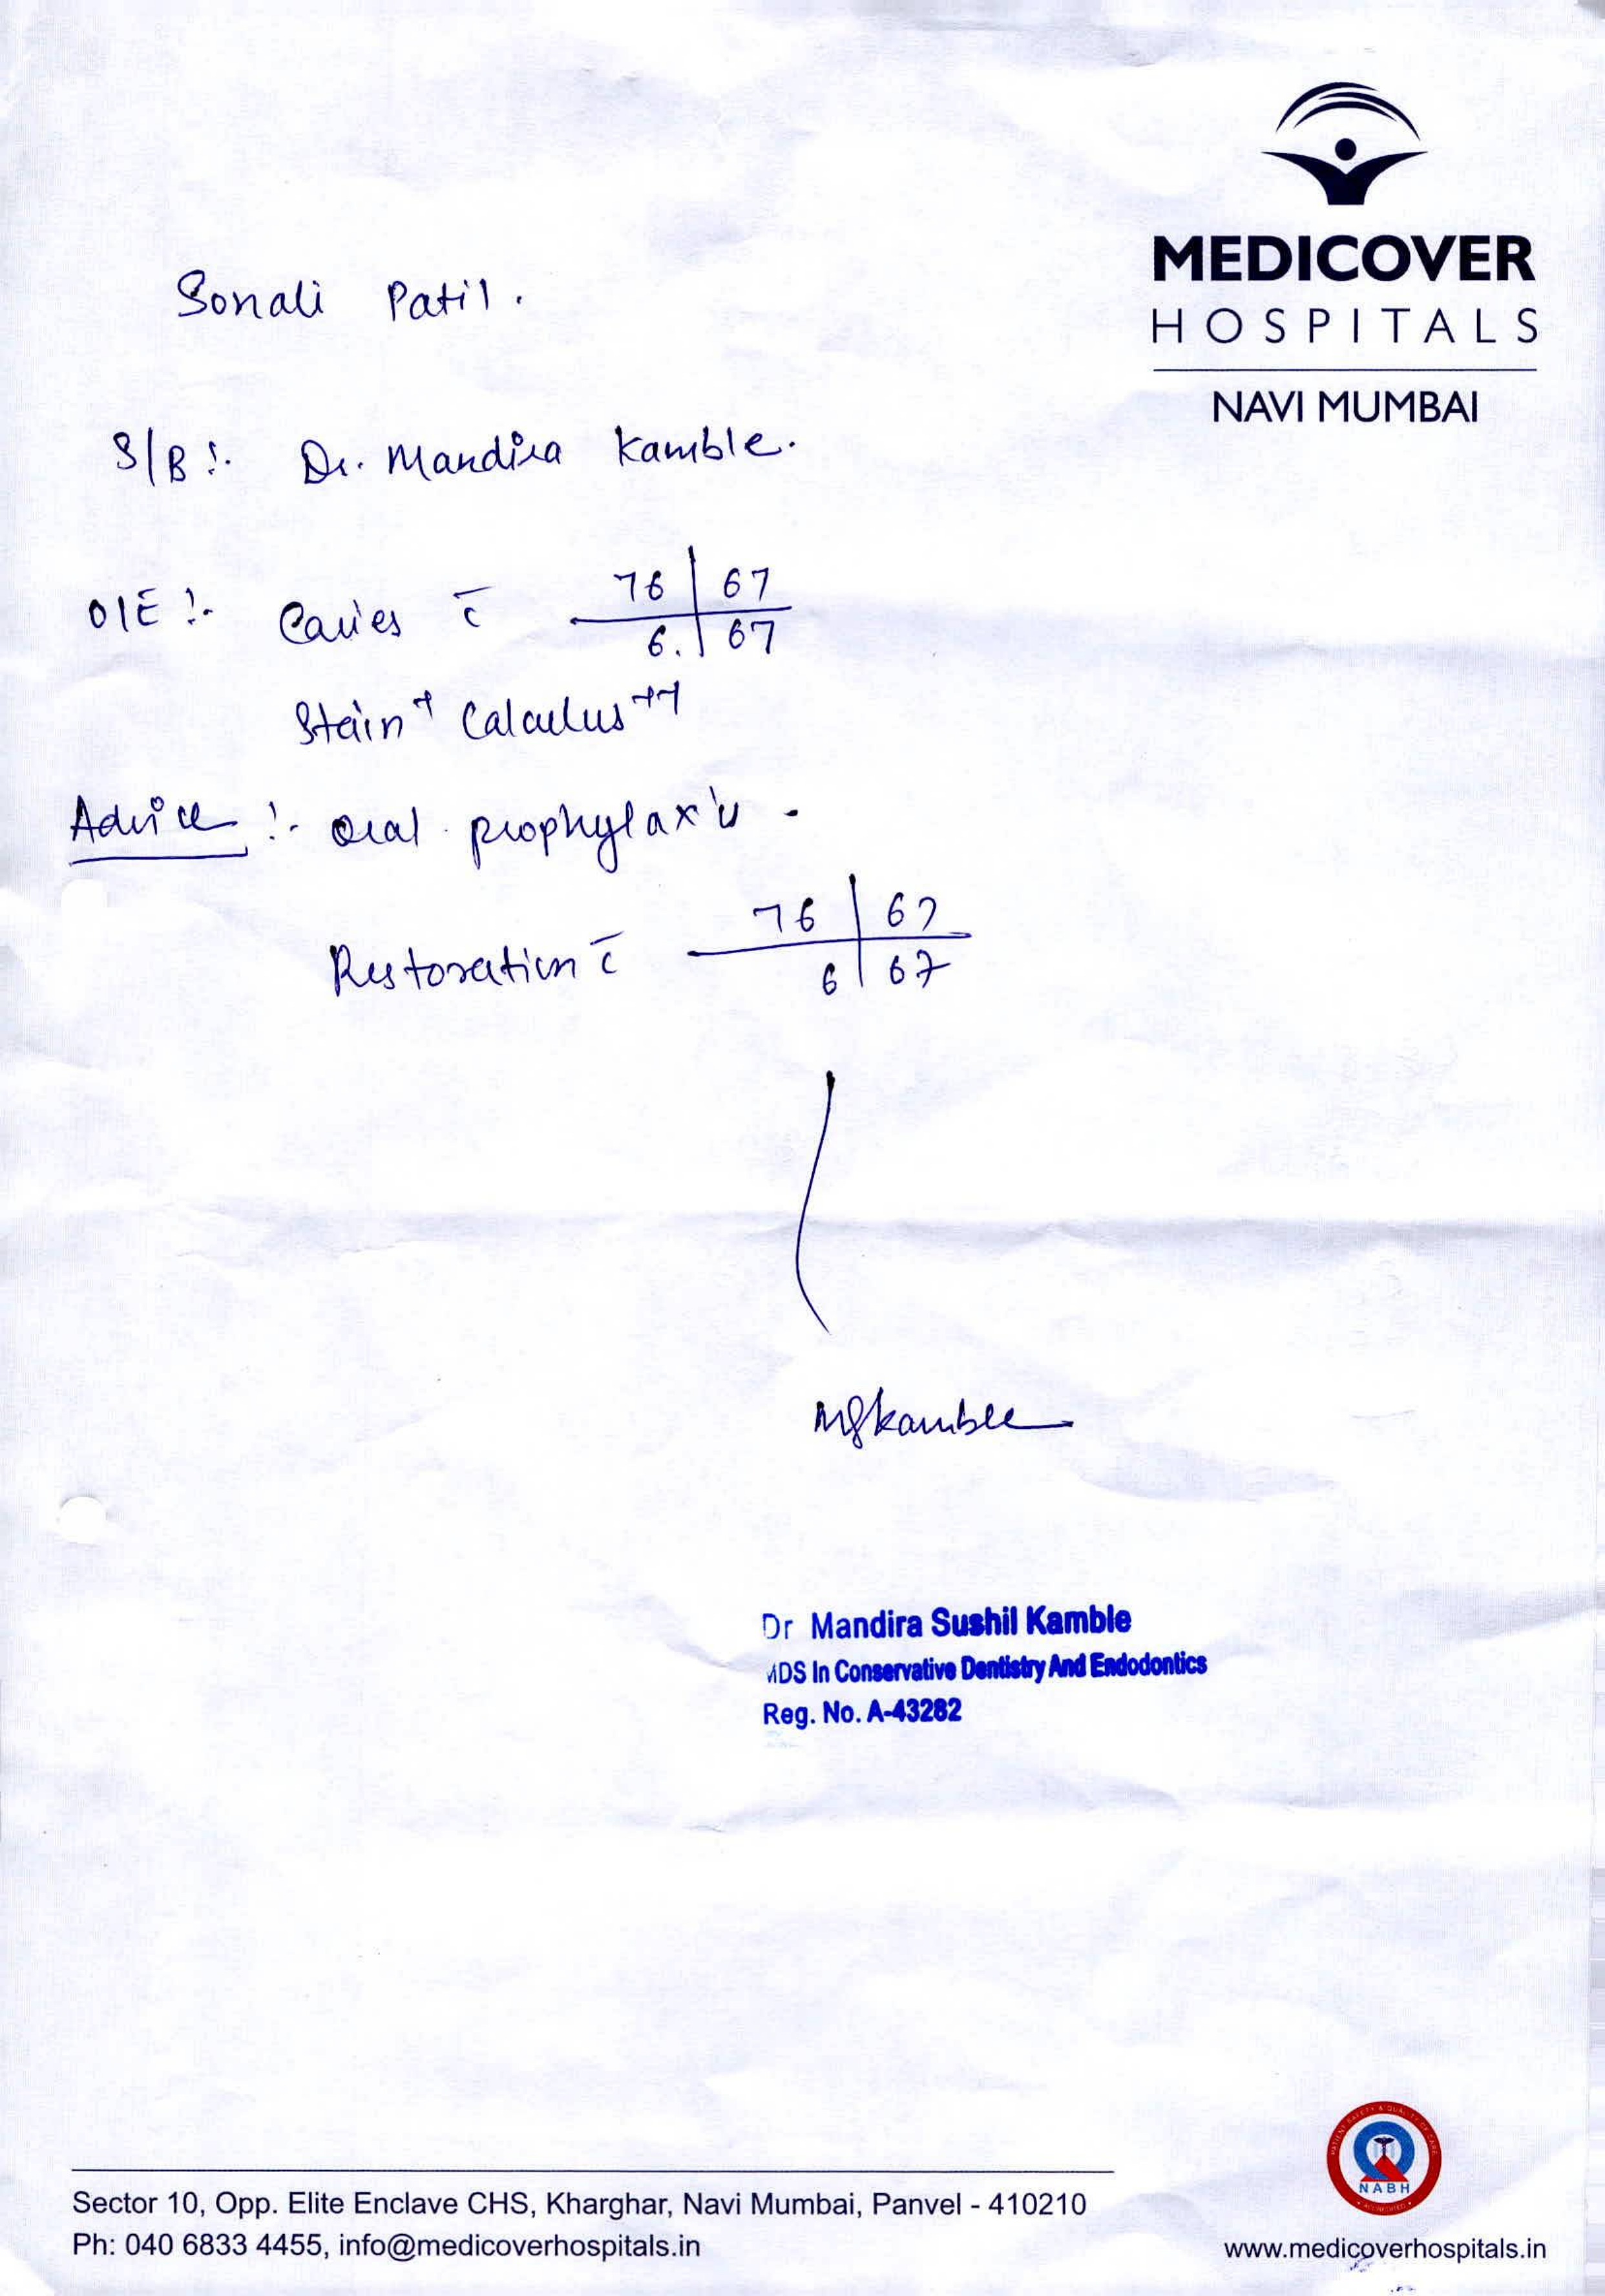 MEDICOVER
HOSPITALS
NAVI MUMBAI
Sonali Patil.
S/B :- Dr. Mandira Kamble.
O/E :- Caries c̄ 76 | 67
6. | 67
Stain + Calculus ++
Advice :- Oral prophylaxis -
Restoration c̄ 76 | 67
6 | 67
MSKamble
Dr Mandira Sushil Kamble
MDS In Conservative Dentistry And Endodontics
Reg. No. A-43282
Sector 10, Opp. Elite Enclave CHS, Kharghar, Navi Mumbai, Panvel - 410210
Ph: 040 6833 4455, info@medicoverhospitals.in
NABH
www.medicoverhospitals.in